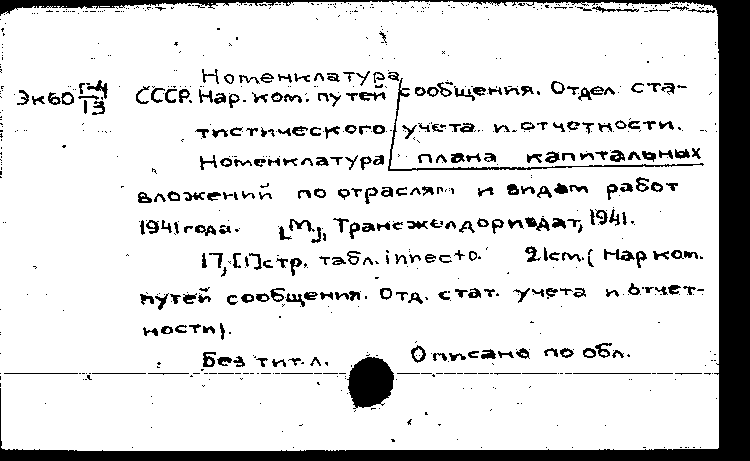 Номенклатура
Эк60 Г-4 СССР. Нар. ком. путей сообщения. Отдел ста-
13
тистического учета и отчетности.
Номенклатура плана капитальных
вложений по отраслям и видам работ
1941 года. [М.], Трансжелдориздат, 1941.
17, [1] стр. табл. in несто. 21 cm. (Нар ком.
путей сообщения. Отд. стат. учета и отчет-
ности).
Без тит. л. Описано по обл.